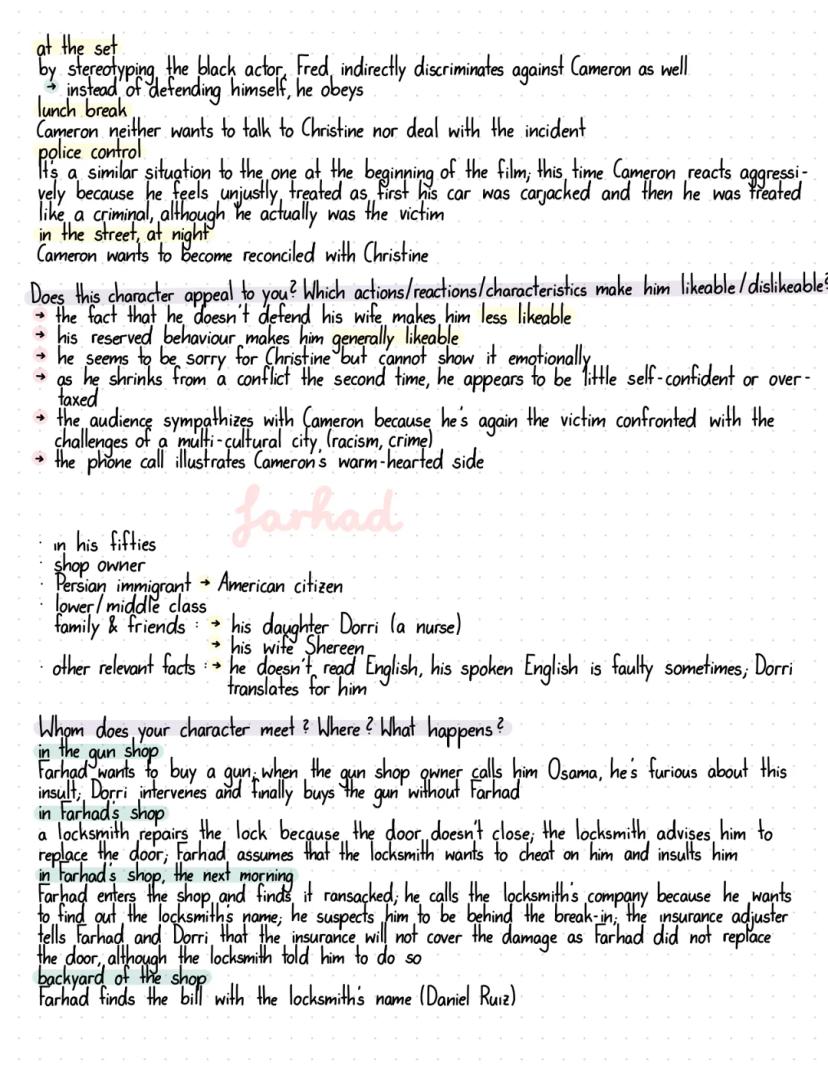 at the set
by stereotyping the black actor, Fred, indirectly discriminates against Cameron as well
→ instead of defending himself, he obeys
lunch break
Cameron neither wants to talk to Christine nor deal with the incident
police control
It's a similar situation to the one at the beginning of the film; this time Cameron reacts aggressi-
vely because he feels unjustly treated as first his car was carjacked and then he was treated
like a criminal, although he actually was the victim
in the street, at night
Cameron wants to become reconciled with Christine
Does this character appeal to you? Which actions/reactions/characteristics make him likeable/dislikeable?
→ the fact that he doesn't defend his wife makes him less likeable
→ his reserved behaviour makes him generally likeable
→ he seems to be sorry for Christine but cannot show it emotionally
→ as he shrinks from a conflict the second time, he appears to be little self-confident or over-
taxed
→ the audience sympathizes with Cameron because he's again the victim confronted with the
challenges of a multi-cultural city (racism, crime)
→ the phone call illustrates Cameron's warm-hearted side
farhad
· in his fifties
· shop owner
· Persian immigrant → American citizen
· lower/middle class
family & friends : → his daughter Dorri (a nurse)
→ his wife Shereen
· other relevant facts : → he doesn't read English, his spoken English is faulty sometimes; Dorri
translates for him
Whom does your character meet? Where? What happens?
in the gun shop
Farhad wants to buy a gun; when the gun shop owner calls him Osama, he's furious about this
insult; Dorri intervenes and finally buys the gun without Farhad
in Farhad's shop
a locksmith repairs the lock because the door doesn't close; the locksmith advises him to
replace the door; Farhad assumes that the locksmith wants to cheat on him and insults him
in Farhad's shop, the next morning
Farhad enters the shop and finds it ransacked; he calls the locksmith's company because he wants
to find out the locksmith's name; he suspects him to be behind the break-in; the insurance adjuster
tells Farhad and Dorri that the insurance will not cover the damage as Farhad did not replace
the door, although the locksmith told him to do so
backyard of the shop
Farhad finds the bill with the locksmith's name (Daniel Ruiz)